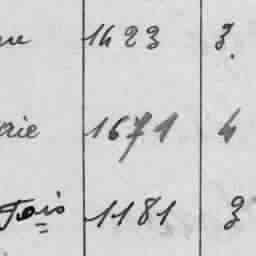 1423 3.
aie 1671 4
Tois 1181 3